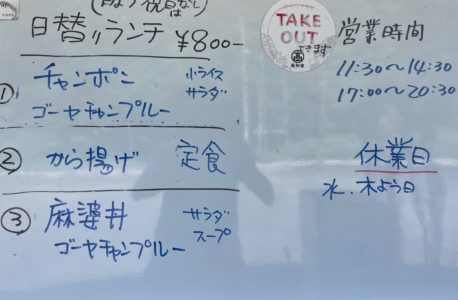 日替りランチ ¥800-
① チャンポン 小ライス
ゴーヤチャンプルー サラダ
② から揚げ 定食
③ 麻婆丼 サラダ
ゴーヤチャンプルー スープ
TAKE
OUT
できます
営業時間
11:30〜14:30
17:00〜20:30
休業日
水、木よう日